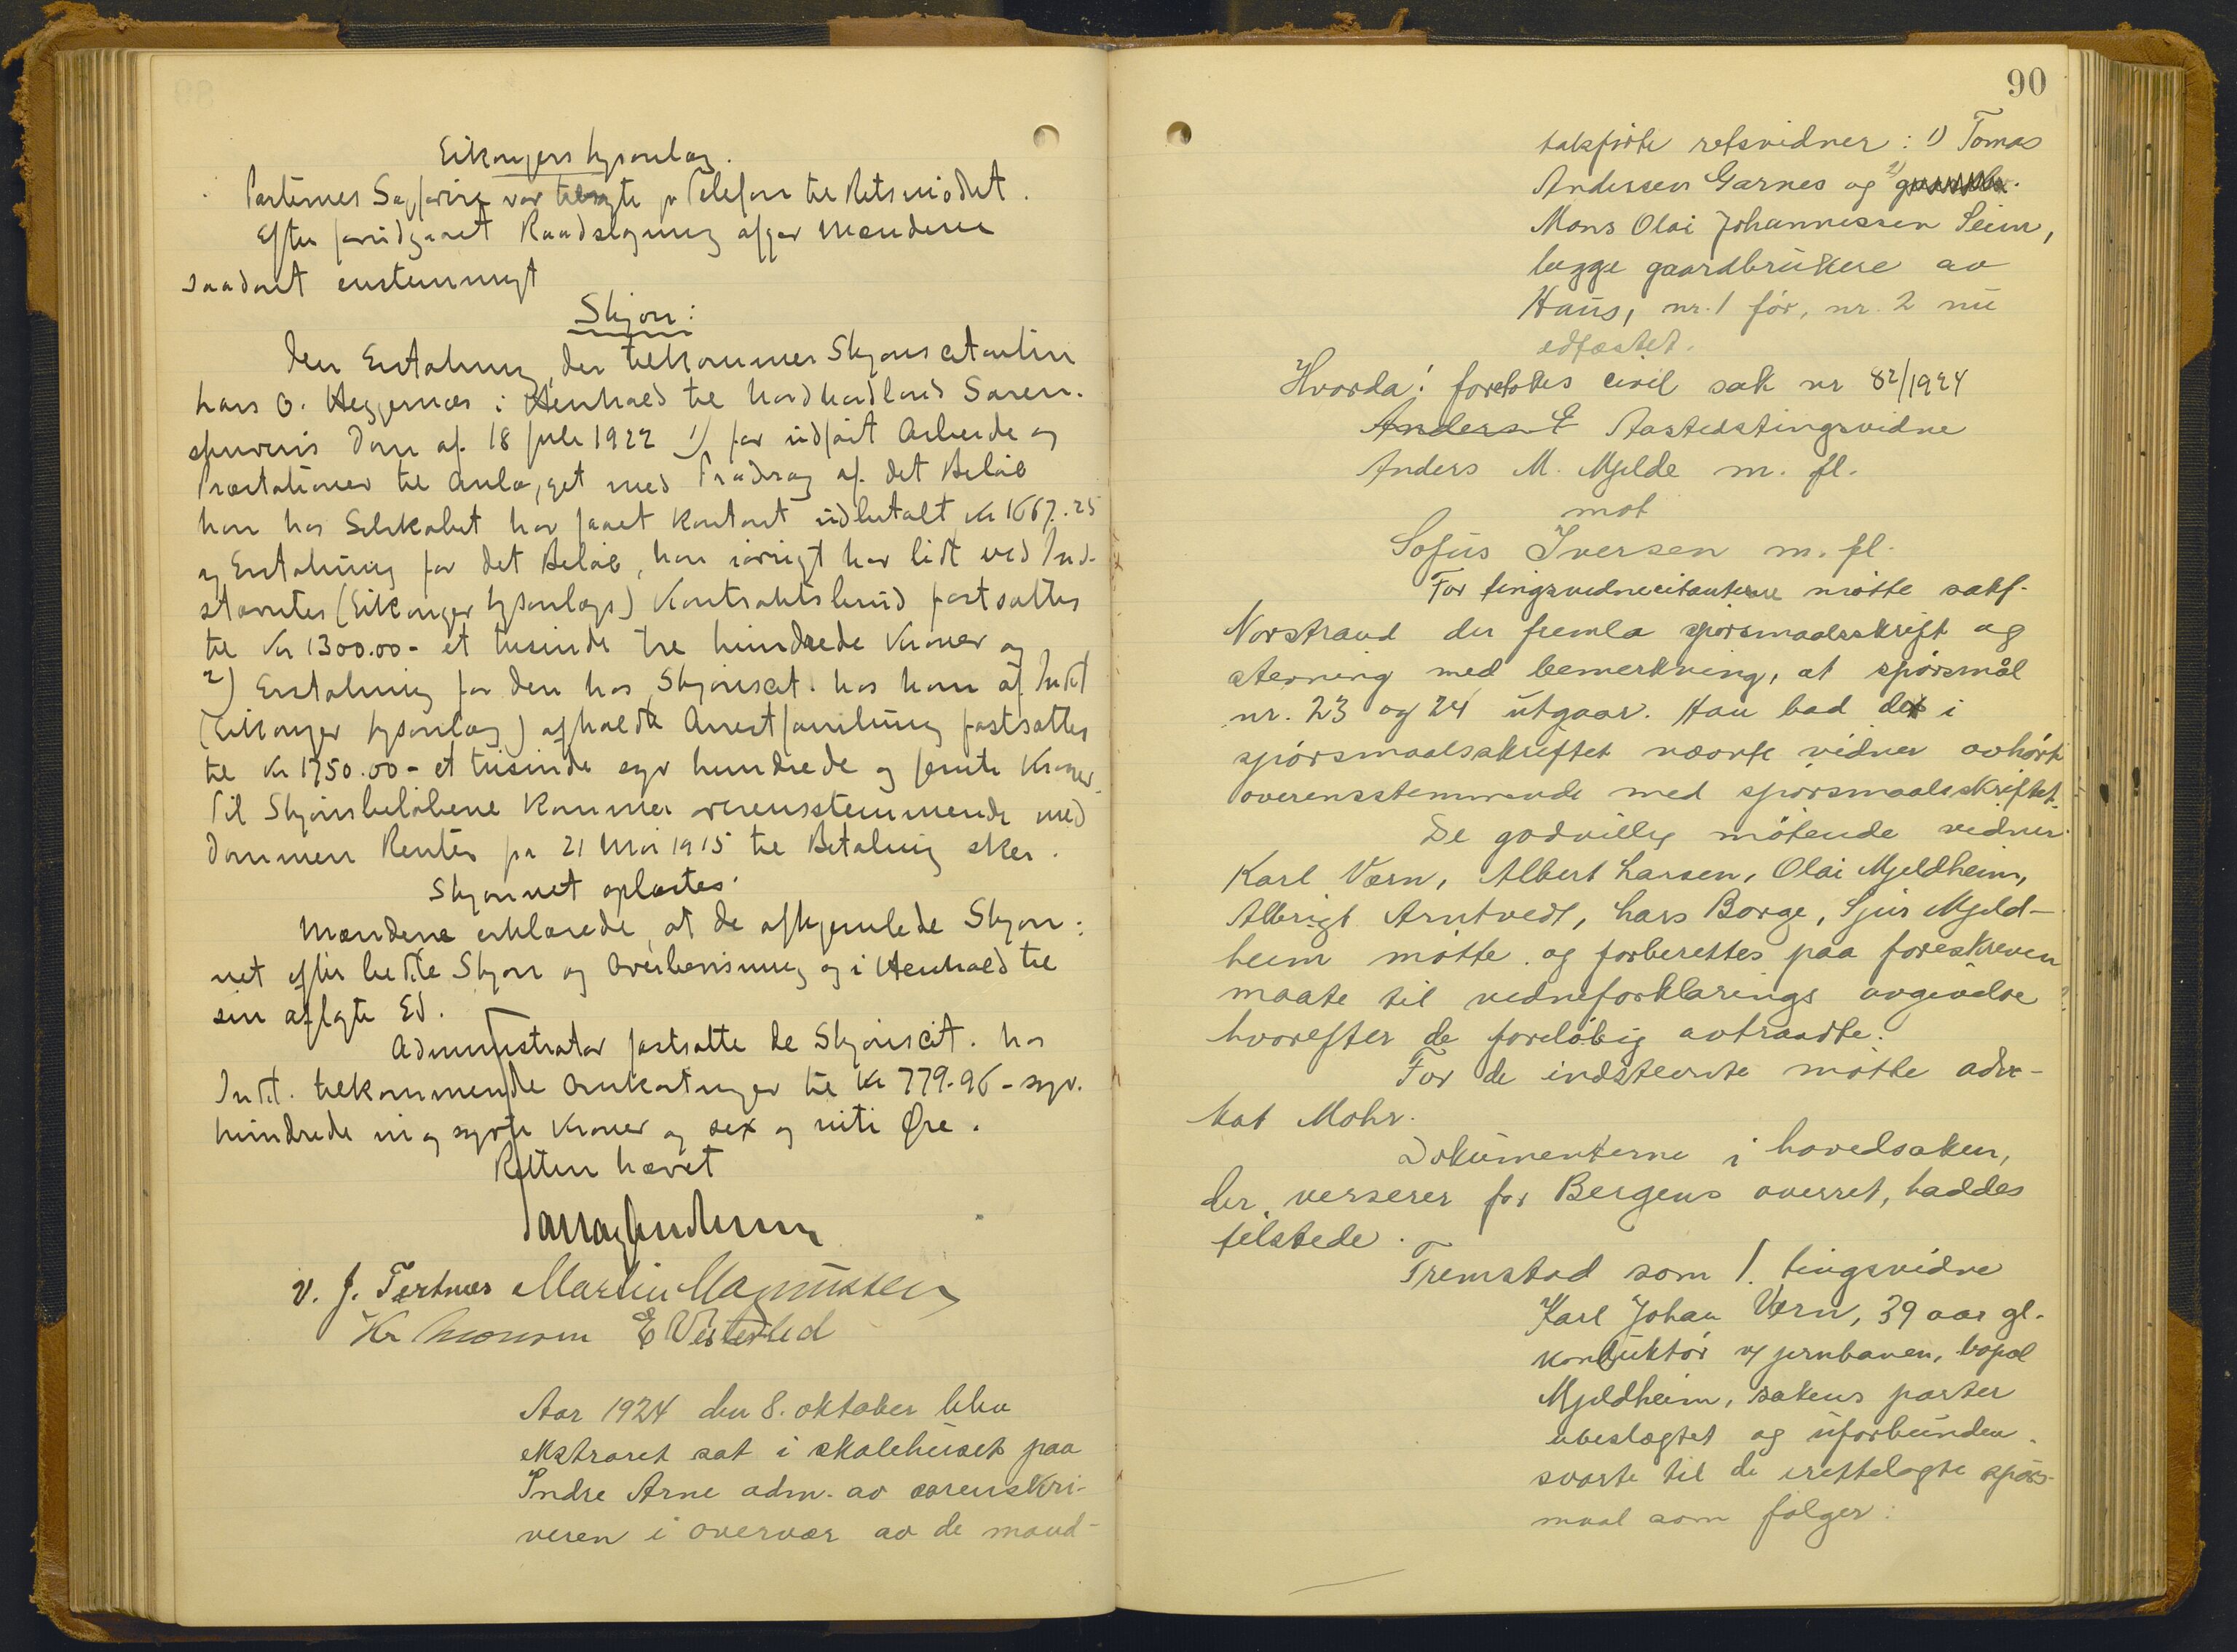 Eikangers Ysonlag.
Parternes Sagførere var tilsagte pr Telefon til Retsmødet.
Efter forudgaaet Raadslagning afgav Mændene
saadant enstemmigt
Skjøn:
Den Erstatning, der tilkommer Skjønscitanten
Lars O. Heggernes i Henhold til Nordhordlands Soren-
skriveris Dom af 18 juli 1922 1) for udført Arbeide og
Præstationer til Anlægget med Fradrag af det Beløb
han hos Selskabet har faaet kontant udbetalt Kr 1667.25
og Erstatning for det Beløb, han iøvrigt har lidt ved Ind-
stævntes (Eikanger Ysonlags) Kontraktsbrud fastsattes
til Kr 1300.00 - et tusinde tre hundrede Kroner og
2) Erstatning for den hos Skjønscit. hos ham af Indst
(Eikanger Ysonlag) afholdte Arrestforretning fastsattes
til Kr 1750.00 - et tusinde syv hundrede og femti Kroner.
Til Skjønsbeløbene kommer overensstemmende med
Dommen Renter fra 21 Mai 1915 til Betaling sker.
Skjønnet oplæstes.
Mændene erklærede, at de afhjemlede Skjøn-
net efter bedste Skjøn og Overbevisning og i Henhold til
sin aflagte Ed.
Administrator fastsatte de Skjønscit. hos
Indst. tilkommende Omkostninger til Kr 779.96 - syv-
hundrede ni og sytti Kroner og sex og niti Øre.
Retten hævet
V. J. Tertnes Martin Magnussen
E Vesterlid
Aar 1924 den 8. oktober blev
ekstraret sat i skolehuset paa
Indre Arne adm. av sorenskri-
veren i overvær av de mand-
90
talsførte retsvidner: 1) Tomas
Andersen Garnes og 2)
Mons Olai Johannessen Seim,
begge gaardbrukere av
Haus, nr. 1 før, nr. 2 nu
edfæstet.
Hvorda: foretokes civil sak nr 82/1924
Aastedstingsvidne
Anders M. Mjelde m. fl.
mot
Sofus Iversen m. fl.
For tingsvidnecitanterne møtte sakf.
Norstrand der fremla spørsmaalsskrift og
stevning med bemerkning, at spørsmål
nr. 23 og 24 utgaar. Han bad de i
spørsmaalsskriftet nævnte vidner avhørt
overensstemmende med spørsmaalsskriftet.
De godvillig møtende vidner
Karl Værn, Albert Larsen, Olai Mjeldheim,
Albrigt Arntvedt, Lars Borge, Sjur Mjeld-
heim møtte og forberettes paa foreskreven
maate til vidneforklarings avgivelse
hvorefter de foreløbig avtraadte.
For de indstevnte møtte advo-
kat Mohr.
Dokumenterne i hovedsaken,
der verserer for Bergens overret, haddes
tilstede.
Fremstod som 1. tingsvidne
Karl Johan Værn, 39 aar gl.
konduktør v/ jernbanen, bopæl
Mjeldheim, sakens parter
ubeslægtet og uforbunden.
svarte til de irettelagte spørs-
maal som følger: